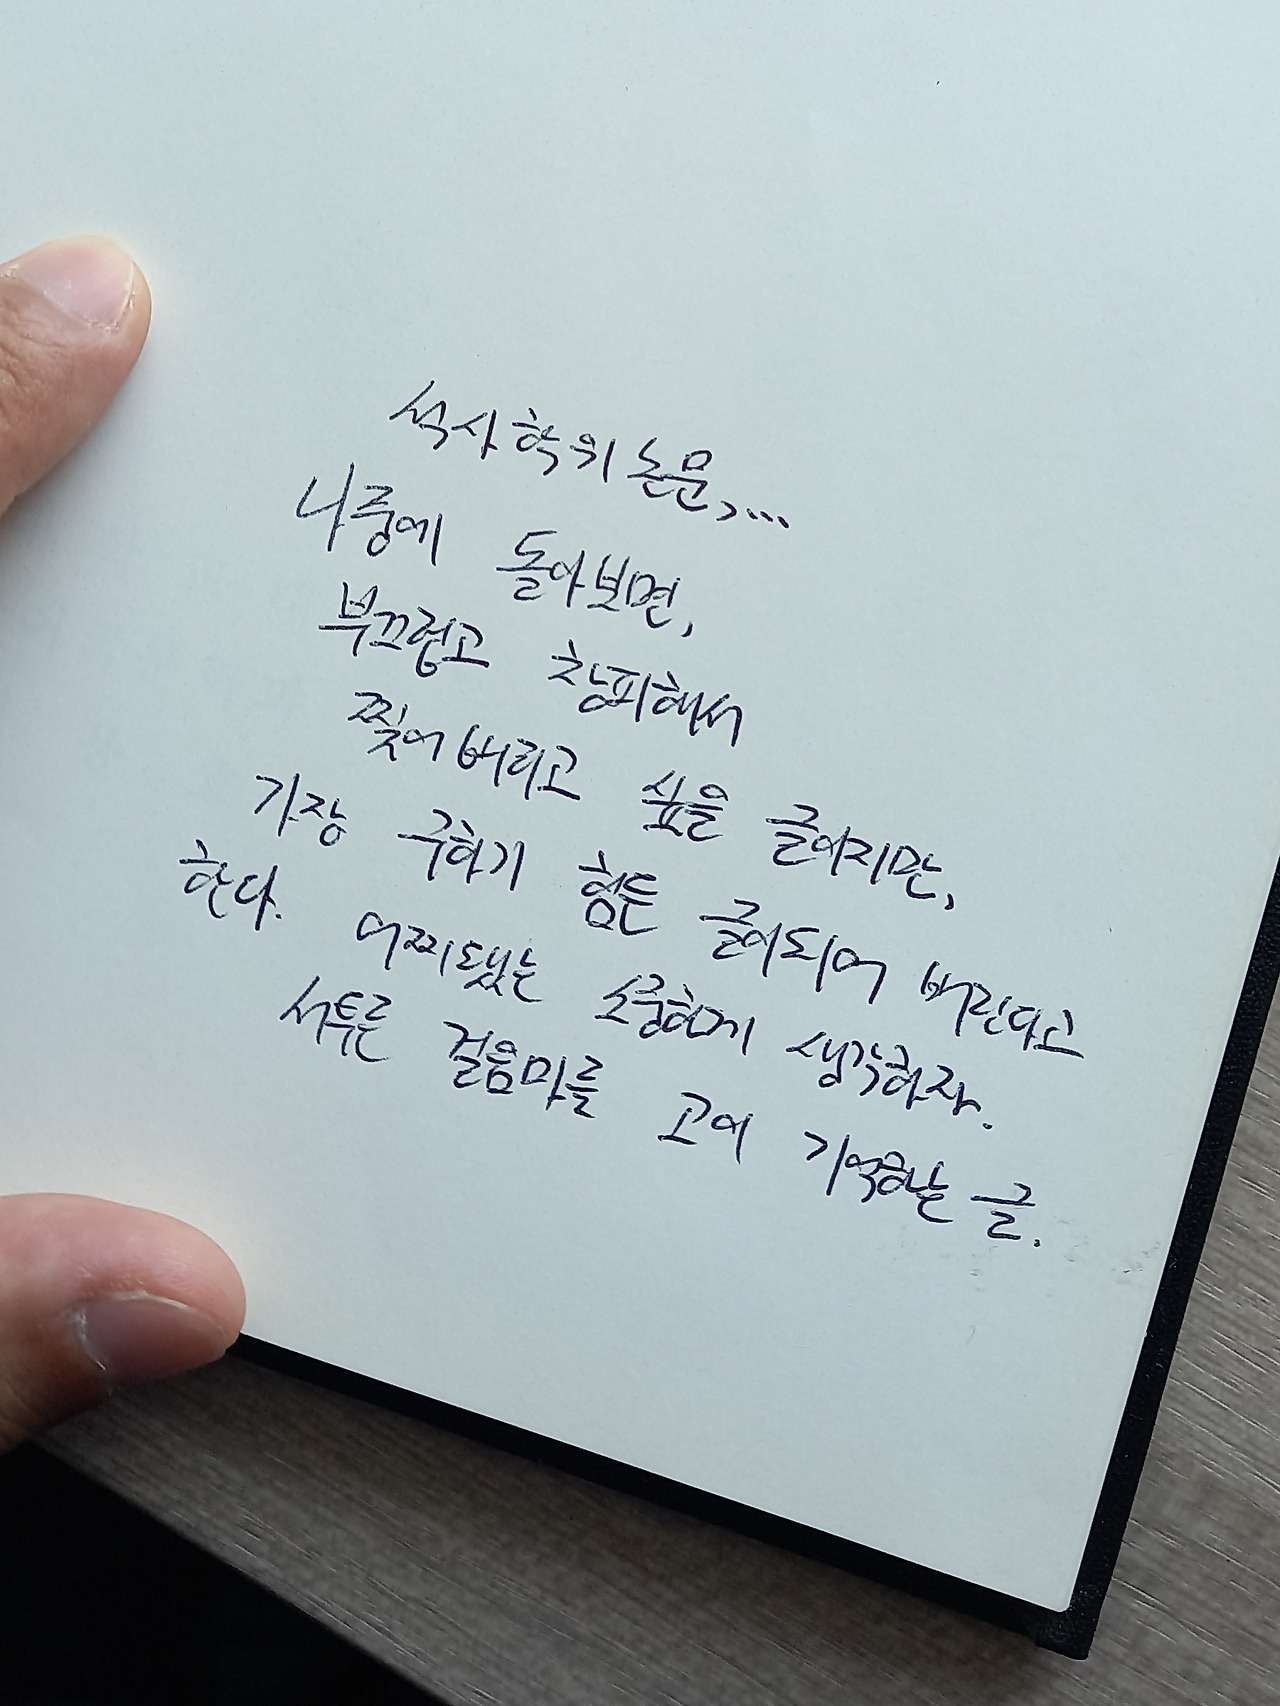 석사학위논문,...
나중에 돌아보면,
부끄럽고 창피해서
찢어버리고 싶을 글이지만,
가장 구하기 힘든 글이되어 버린다고
한다. 어찌됐는 소중하게 생각하자.
서투른 걸음마를 고이 기억하는 글.